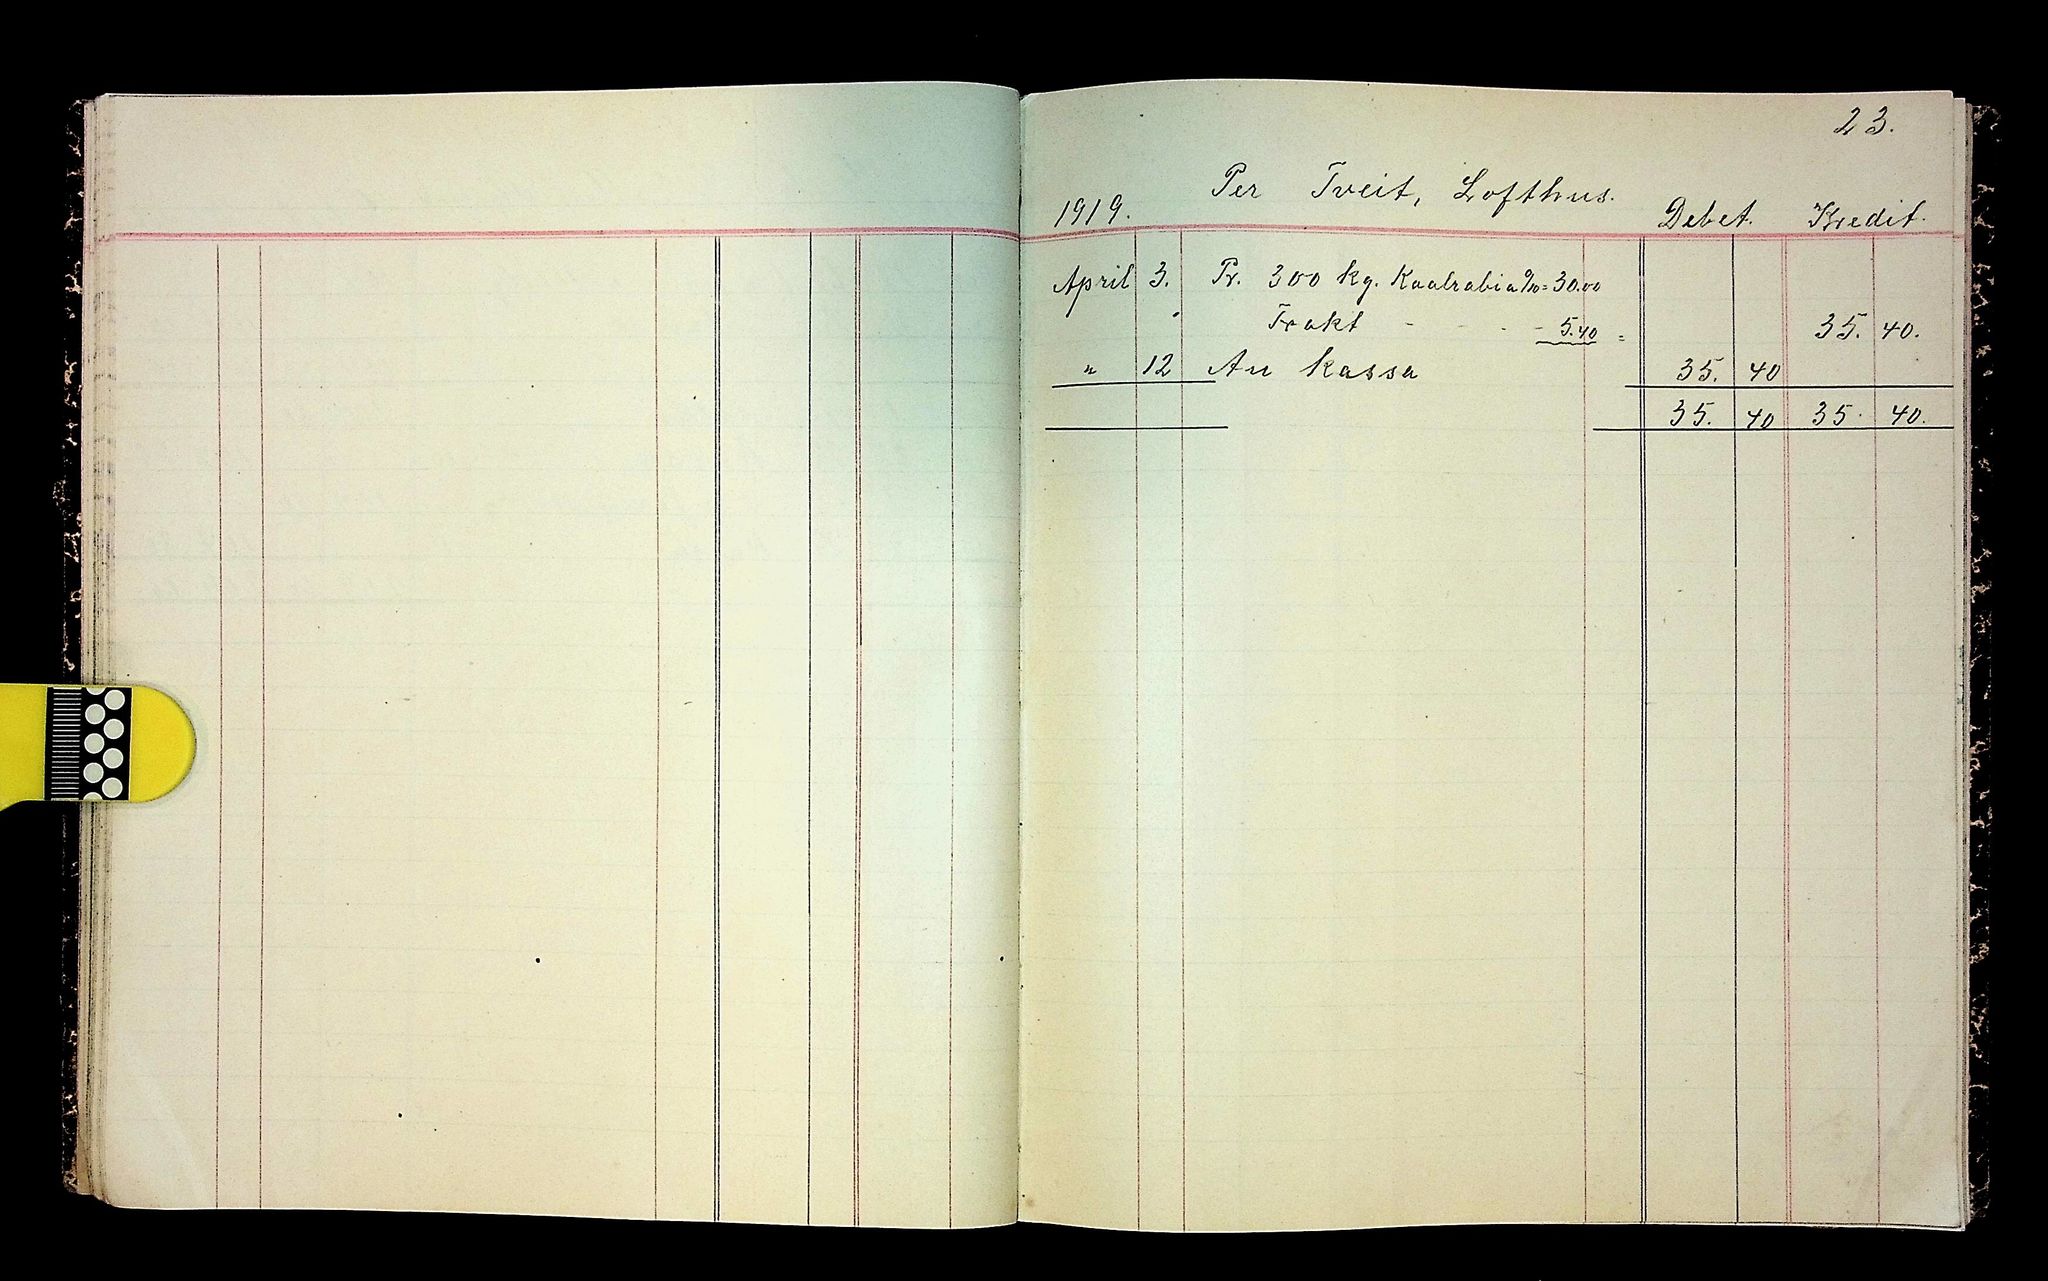 23.
Per Tveit, Lofthus.
1919. Debet. Kredit.
April 3. Pr. 300 kg. Kaalrabi a %= 30.00
Frakt - - - - 5.40 = 35. 40.
" 12 An kassa 35. 40
35. 40 35. 40.